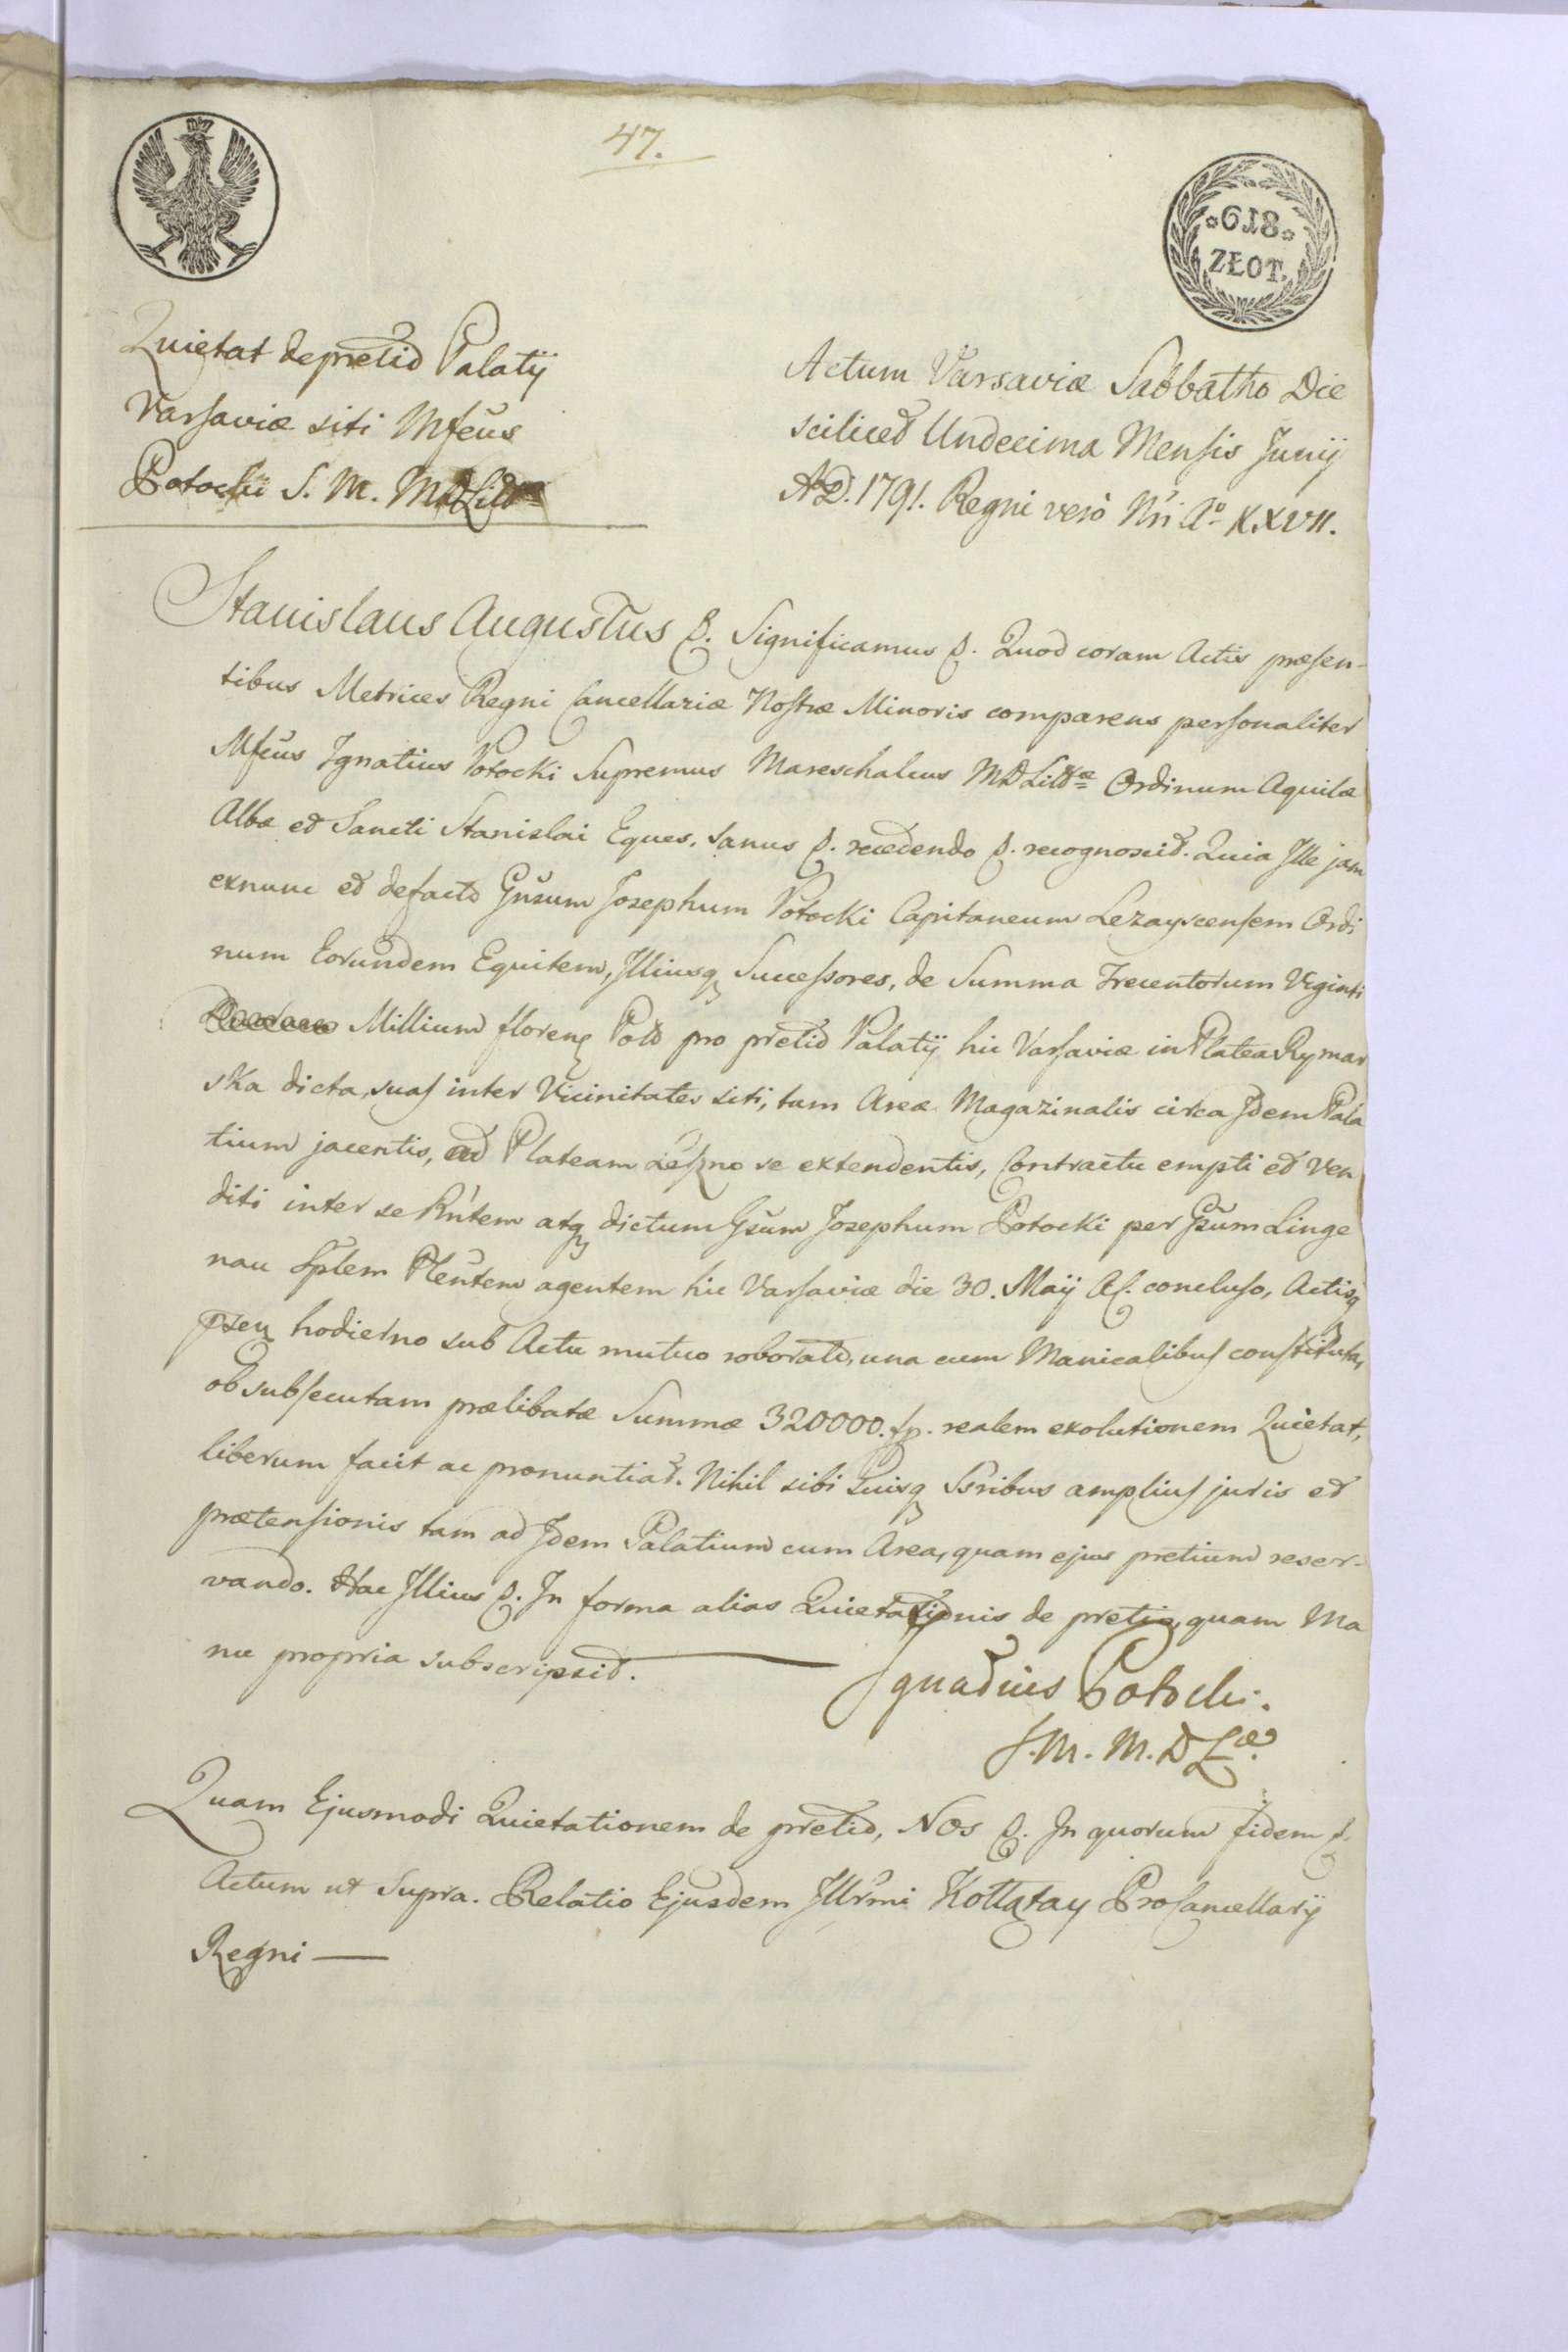 47.
618
ZŁOT.
Quietat de pretio Palatij
Varsaviæ siti Mfcus
Potockii S. M. MDLitt
Actum Varsaviæ Sabbatho Die
scilicet Undecima Mensis Junij
A.D. 1791. Regni vero Nri Aº XXVII.
Stanislaus Augustus &. Significamus &. Quod coram Actis præsen-
tibus Metrices Regni Cancellariæ Nostræ Minoris comparens personaliter
Mfcus Ignatius Potocki Supremus Mareschalcus MDLittæ Ordinum Aquilæ
Albæ et Sancti Stanislai Eques, sanus &. recedendo &. recognovit. Quia Ille jam
exnunc et defacto Gnsum Josephum Potocki Capitaneum Lezayscensem Ordi
num Eorundem Equitem, Illiusq Successores, de Summa Trecentorum Viginti
Millium floreng Pol pro pretio Palatij hic Varsaviæ in Platea Rymar
ska dicta, suas inter Vicinitates siti, tum Areæ Magazinalis circa Idem Pala
tium jacentis, ad Plateam Leszno se extendentis, Contractu empti et Ven
diti inter se Rntem atq dictum Gsum Josephum Potocki per Gsum Linge
nau Splem Plentem agentem hic Varsaviæ die 30. Maij As. concluso, Actisq
hodierno sub Actu mutuo roborato, una cum Manicalibus constituta,
ob subsecutam prælibatæ Summæ 320000. fp. realem exolutionem Quietat,
liberum facit ac pronuntiat. Nihil sibi Suisq Ssribus amplius juris et
prætensionis tam ad Idem Palatium cum Area, quam ejus pretium reser-
vando. Hac Illius &. In forma alias Quietationis de pretio, quam Ma
nu propria subscripsit.
Ignatius Potocki.
S. M. M. D Læ.
Quam Ejusmodi Quietationem de pretio, Nos &. In quorum fidem &.
Actum ut Supra. Relatio Ejusdem Illrmi Kołłątay ProCancellarij
Regni